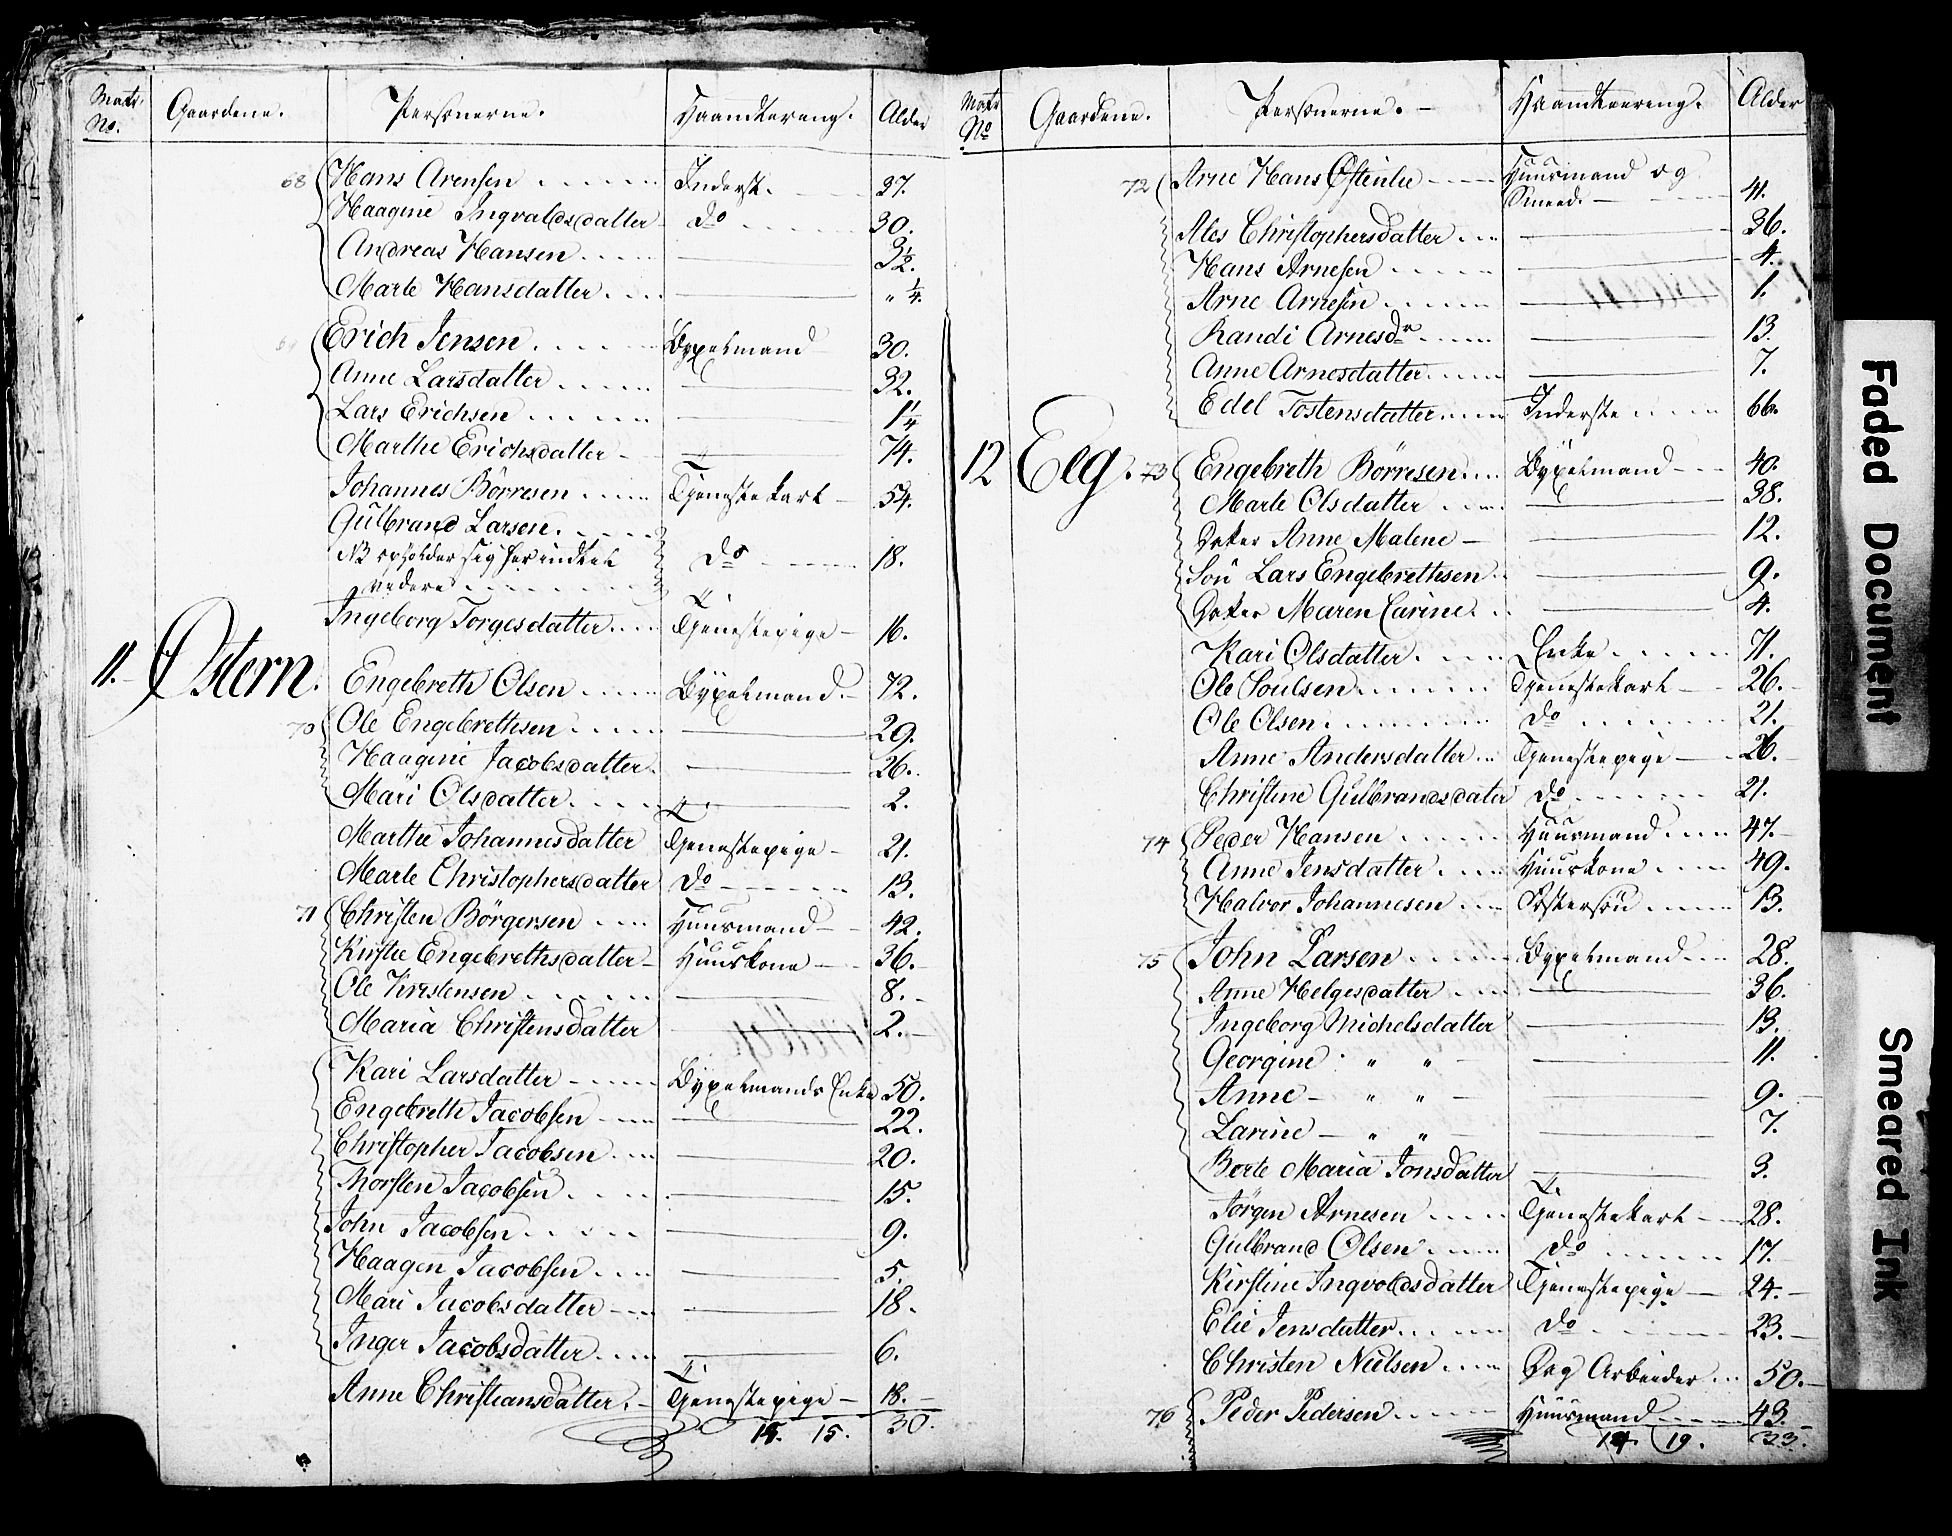 Matr. No. Gaardene. Personerne. Haandtering. Alder
68 Hans Arensen Inderst. 37.
Haagine Ingvaldsdatter do 30.
Andreas Hansen 3½.
Marte Hansdatter " ¼.
69 Erich Jensen Bÿxelmand 30.
Anne Larsdatter 32.
Lars Erichsen 1¼
Marthe Erichsdatter 74.
Johannes Börresen Tjenestekarl 54.
Gülbrand Larsen.
NB opholder sig her indtil
videre do 18.
Ingeborg Torgesdatter Tjenestepige 16.
11. Østern. Engebreth Olsen Bÿxelmand. 72.
70 Ole Engebrethsen 29.
Haagine Jacobsdatter. 26.
Mari Olsdatter. 2.
Marthe Johannesdatter Tjenestepige 21.
Marte Christophersdatter do 13.
71 Christen Börgersen Huusmand 42.
Kirstie Engebrethsdatter Huuskone 36.
Ole Kirstensen 8.
Maria Christensdatter 2.
Kari Larsdatter Bÿxelmands Enke 50.
Engebreth Jacobsen 22.
Christopher Jacobsen 20.
Thorsten Jacobsen 15.
John Jacobsen 9.
Haagen Jacobsen 5.
Mari Jacobsdatter 18.
Inger Jacobsdatter 6.
Anne Christiansdatter. Tjenestepige 18.
15. 15. 30.
Matr No Gaardene. Personerne. Haandtering. Alder
72 Arne Hans Østenlie Huusmand og
Smeed. 41.
Ales Christophersdatter 36.
Hans Arnesen 4.
Arne Arnesen 1.
Randi Arnesdr 13.
Anne Arnesdatter 7.
Edel Tostensdatter Inderste 66.
12 Elg. 73 Engebreth Börresen Bÿxelmand 40.
Marte Olsdatter 38.
Datter Anne Malene 12.
Søn Lars Engebrethsen 9.
Datter Maren Carine 4.
Kari Olsdatter. Enke 71.
Ole Poulsen Tjenestekarl 26.
Ole Olsen. do 21.
Anne Andersdatter Tjenestepige 26.
Christine Gülbrandsdater do 21.
74 Peder Hansen Huusmand 47.
Anne Jensdatter Huuskone 49.
Halvor Johannesen Fostersøn 13.
75 John Larsen Bÿxelmand 28.
Anne Helgesdatter 36.
Ingeborg Michelsdatter 13.
Georgine " " 11.
Anne " " 9.
Larine " " 7.
Berte Maria Jonsdatter 3.
Jörgen Arnesen Tjenestekarl 28.
Gulbrand Olsen do 17.
Kirstine Ingvoldsdatter Tjenestepige 24.
Elie Jensdatter do 23.
Christen Nielsen Dag Arbeider 50.
76 Peder Pedersen Huusmand 43.
14. 19. 33.
Faded Document
Smeared Ink